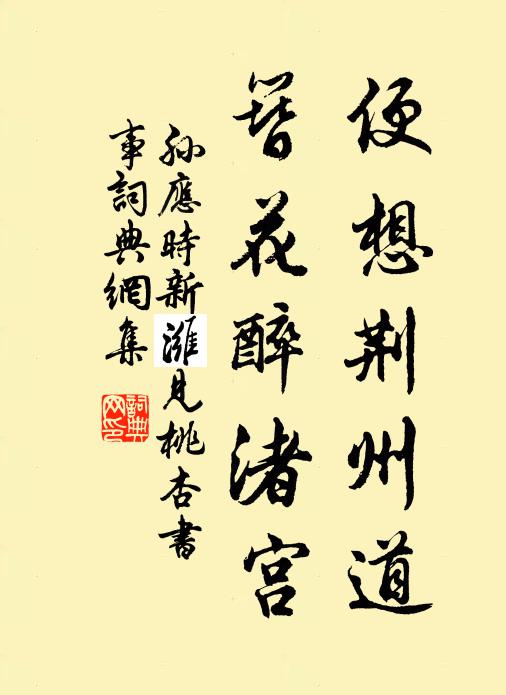 便想荆州道
簪花醉渚宫
孙應時新濰見桃杏書
事詞典網集
詞典网印